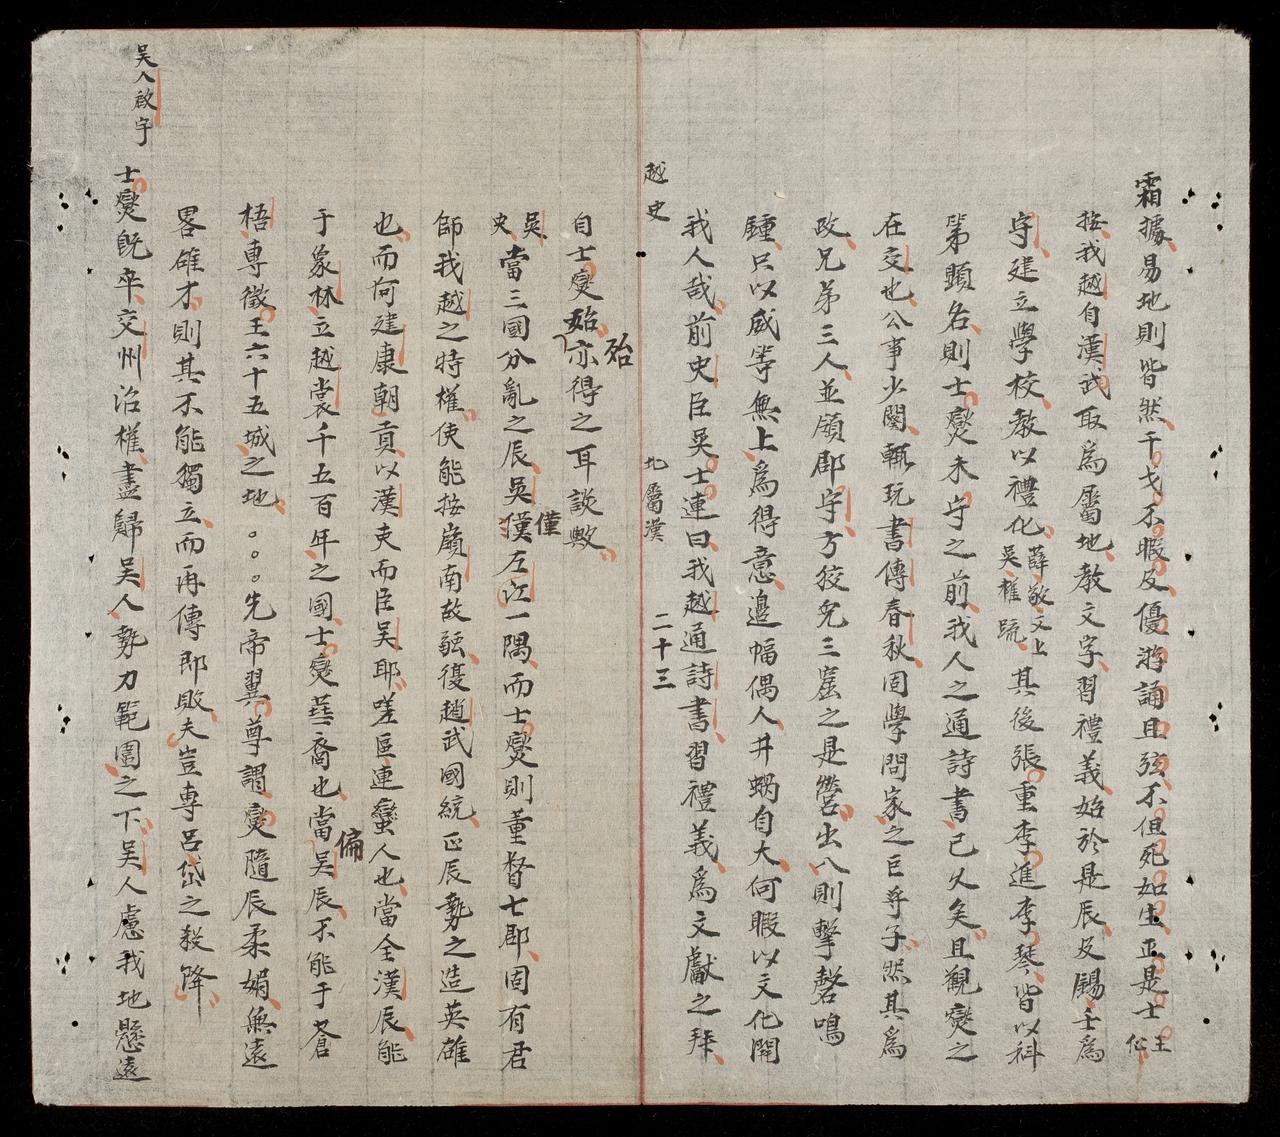 霜據易地則皆然干戈不暇及優游誦且弦不但死如生正是士王仙
按我越自漢武取爲屬地教文字習禮義始於是辰及錫壬爲
守建立學校教以禮化薛敬文上吳權疏其後張重李進李琴皆以科
第顯名則士燮未守之前我人之通詩書已久矣且觀燮之
在交也公事少闋輒玩書傳春秋固學問家之巨孚子然其爲
政兄弟三人並領郡守方狡兔三窟之是營出入則擊磬鳴
鍾只以威等無上爲得意邊幅偶人井蝸自大何暇以文化開
我人哉前史臣吳士連曰我越通詩書習禮義爲文獻之拜
越史 北屬漢 二十三
自士燮始亦得之耳談歟
殆
吳史當三國分亂之辰吳僅左江一隅而士燮則董督七郡固有君
僅
師我越之特權使能按嶺南故疆復趙武國統正辰勢之造英雄
也而何建康朝貢以漢吏而臣吳耶嗟區連蠻人也當全漢辰能
于象林立越裳千五百年之國士燮華裔也當吳辰不能于蒼
偏
梧專徵王六十五城之地。。。先帝翼尊謂燮隨辰柔媚無遠
畧雄才則其不能獨立而再傳即敗夫豈專呂岱之殺降
士燮旣卒交州治權盡歸吳人勢力範圍之下吳人慮我地懸遠
吳人啟守